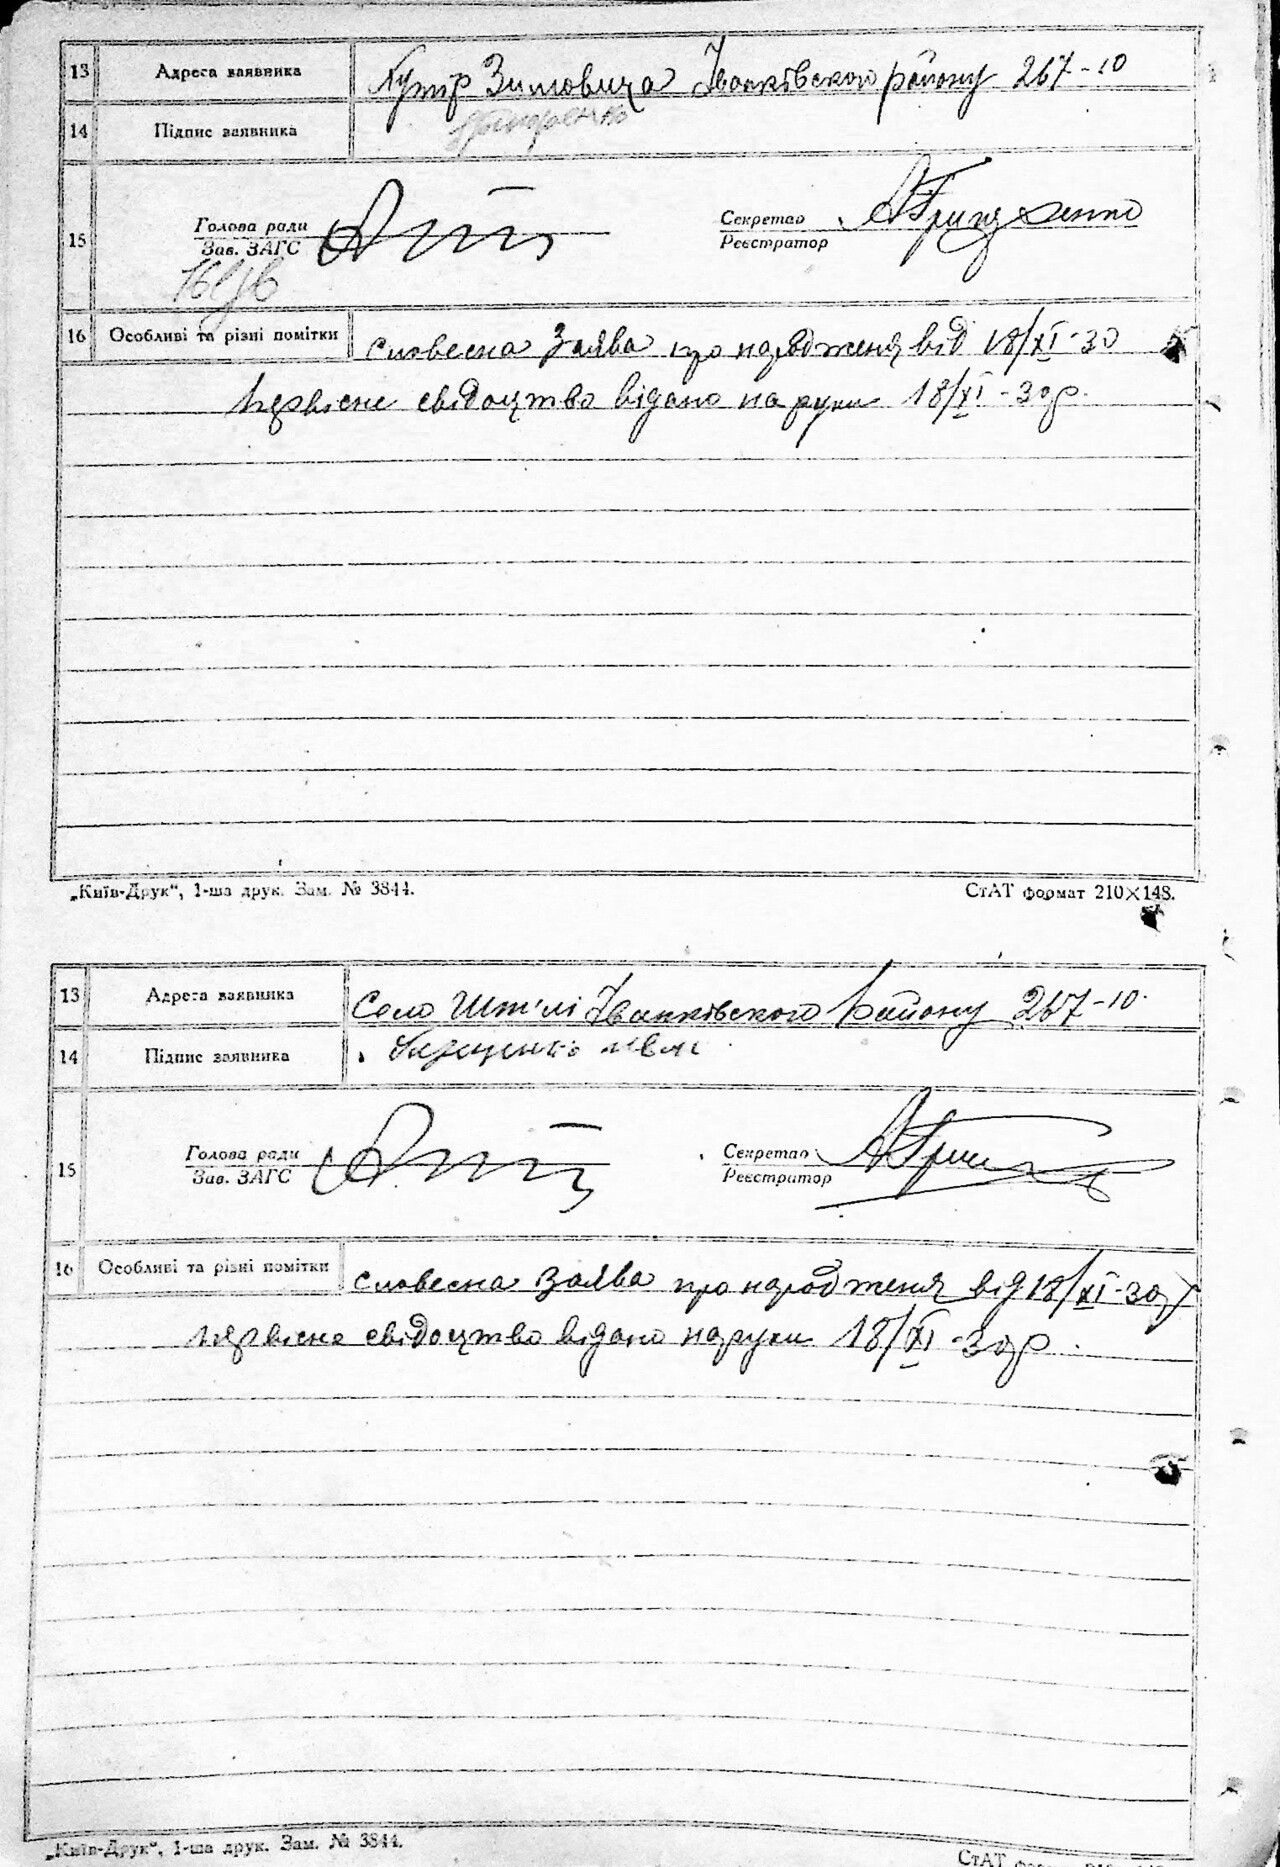 13 Адреса заявника Хутір Зимовища Іванківского району 267-10
14 Підпис заявника
Голова ради Секретар
15 Зав. ЗАГС Реєстратор А Грищенко
16 Особливі та різні помітки словесна Заява про народженя від 18/XI-30
первісне свідоцтво видано на руки 18/XI-30р.
„Київ-Друк“, 1-ша друк. Зам. № 3844. СтАТ формат 210×148.
13 Адреса заявника Село Іванківского Району 267-10
14 Підпис заявника
Голова ради Секретар
15 Зав. ЗАГС Реєстратор
16 Особливі та різні помітки словесна Заява про народженя від 18/XI-30р
первісне свідоцтво видано на руки 18/XI-30р.
„Київ-Друк“, 1-ша друк. Зам. № 3844. СтАТ